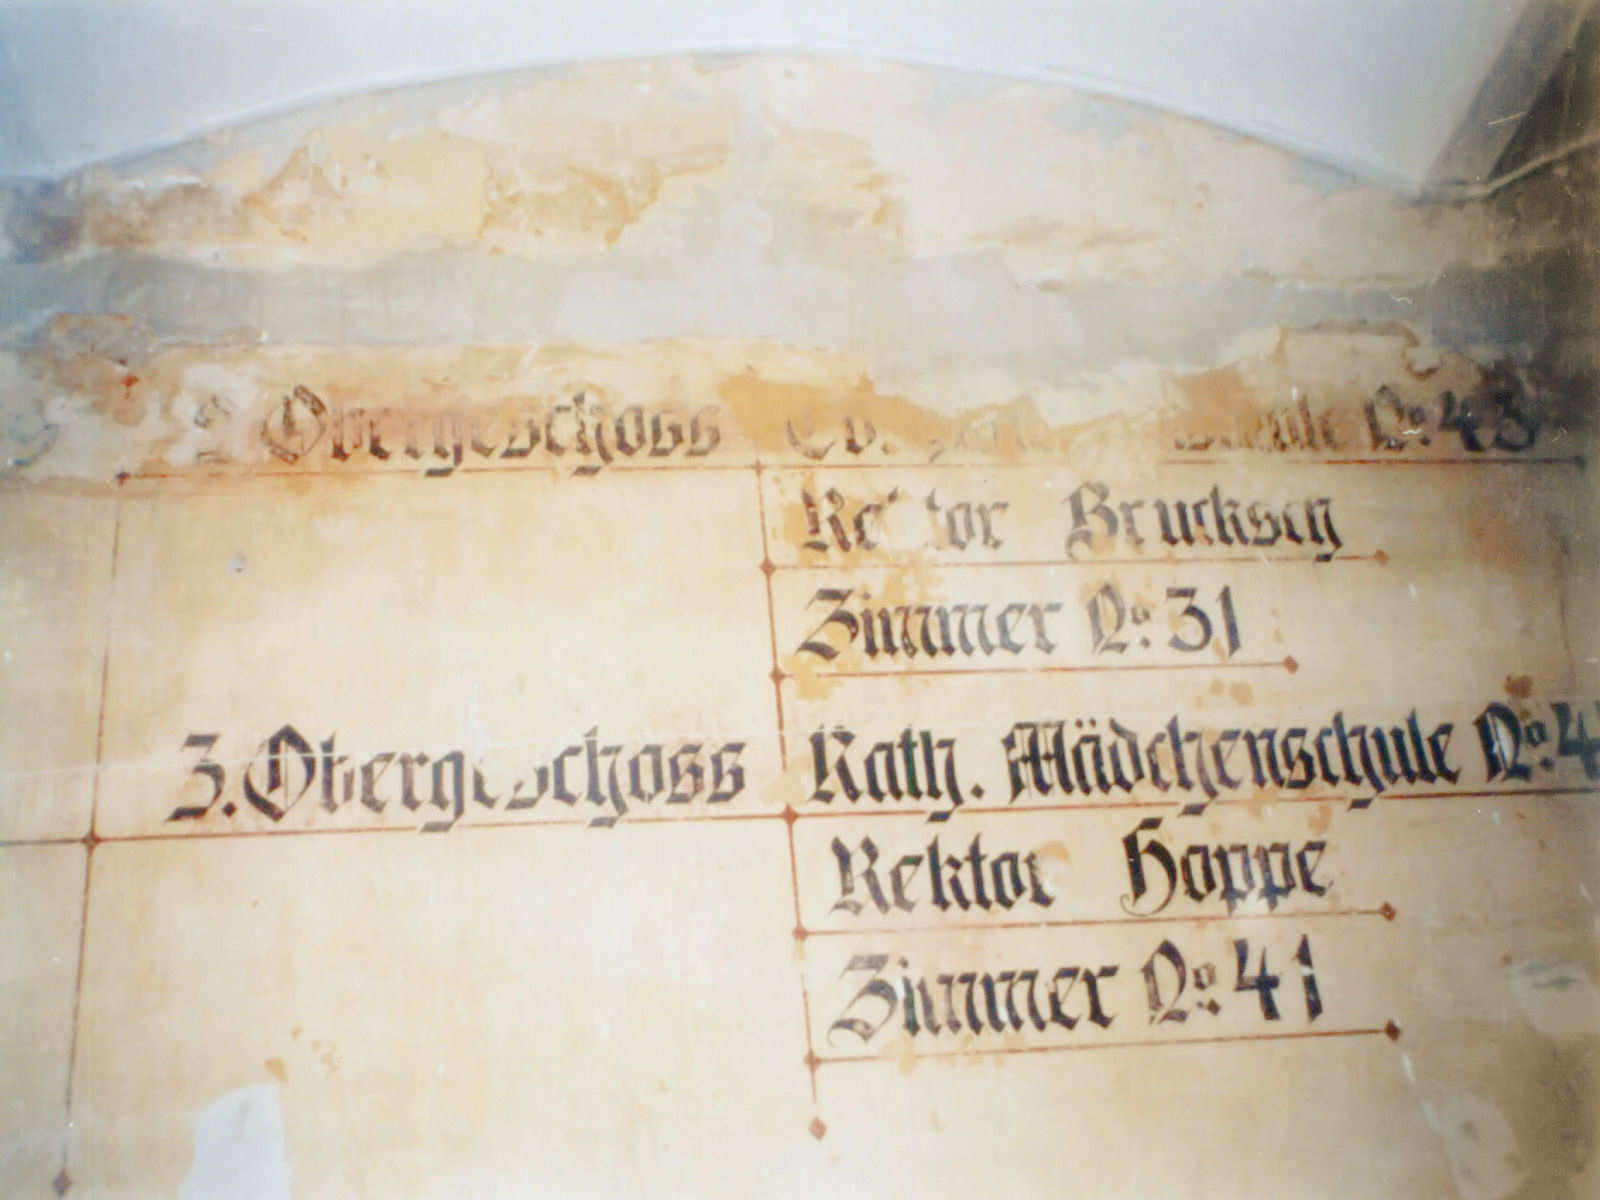 2 Obergeschoss Ev. schule No. 43
Rektor Brucksch
Zimmer No. 31
3. Obergeschoss Kath. Mädchenschule No. 4
Rektor Hoppe
Zimmer No. 41